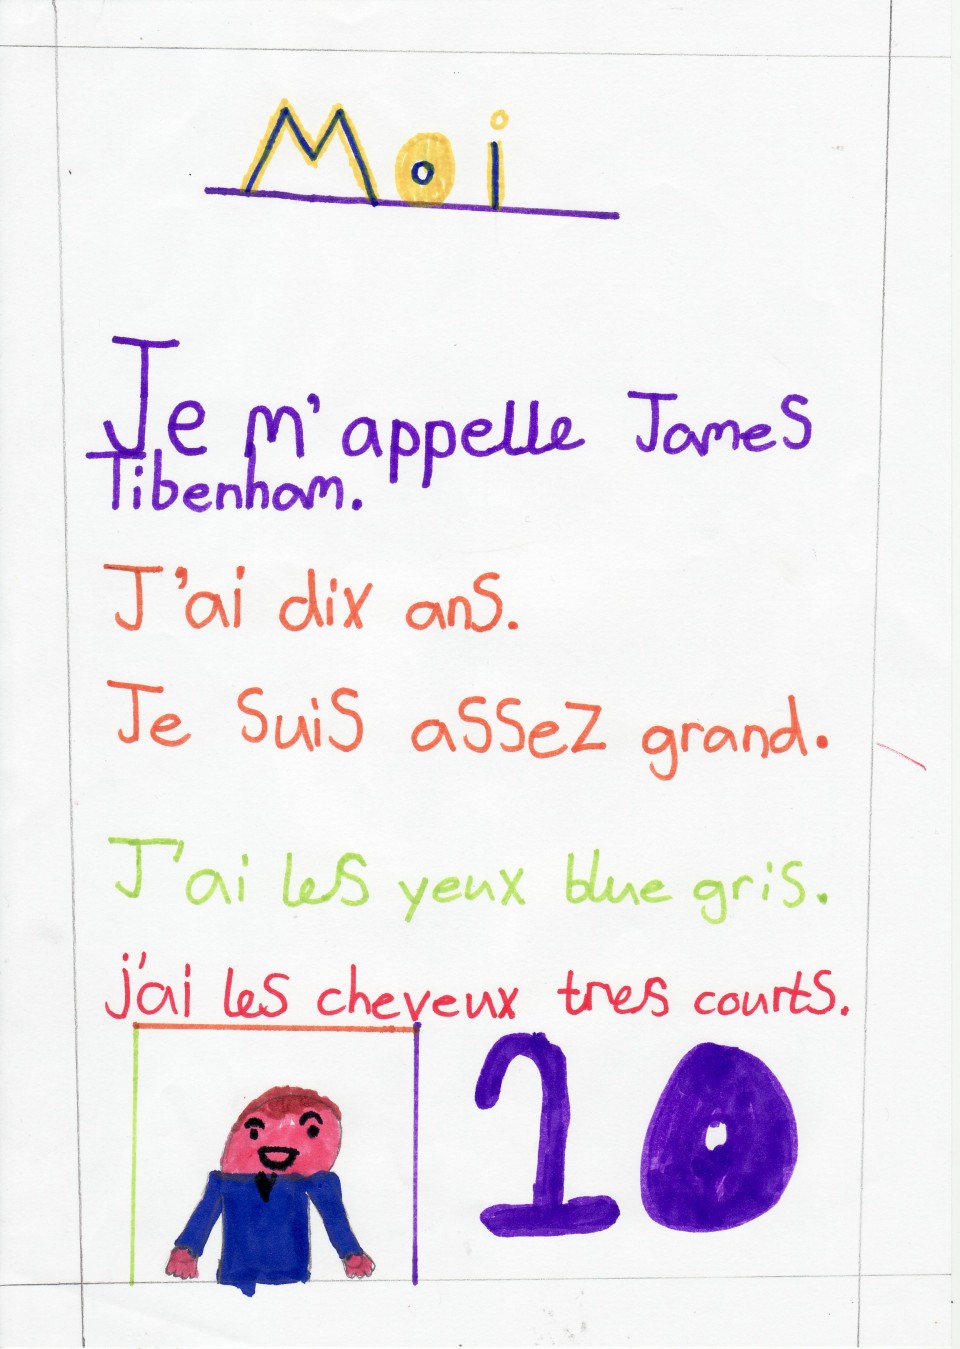 Moi
Je m'appelle James
Tibenham.
J'ai dix ans.
Je suis assez grand.
J'ai les yeux blue gris.
j'ai les cheveux tres courts.
10